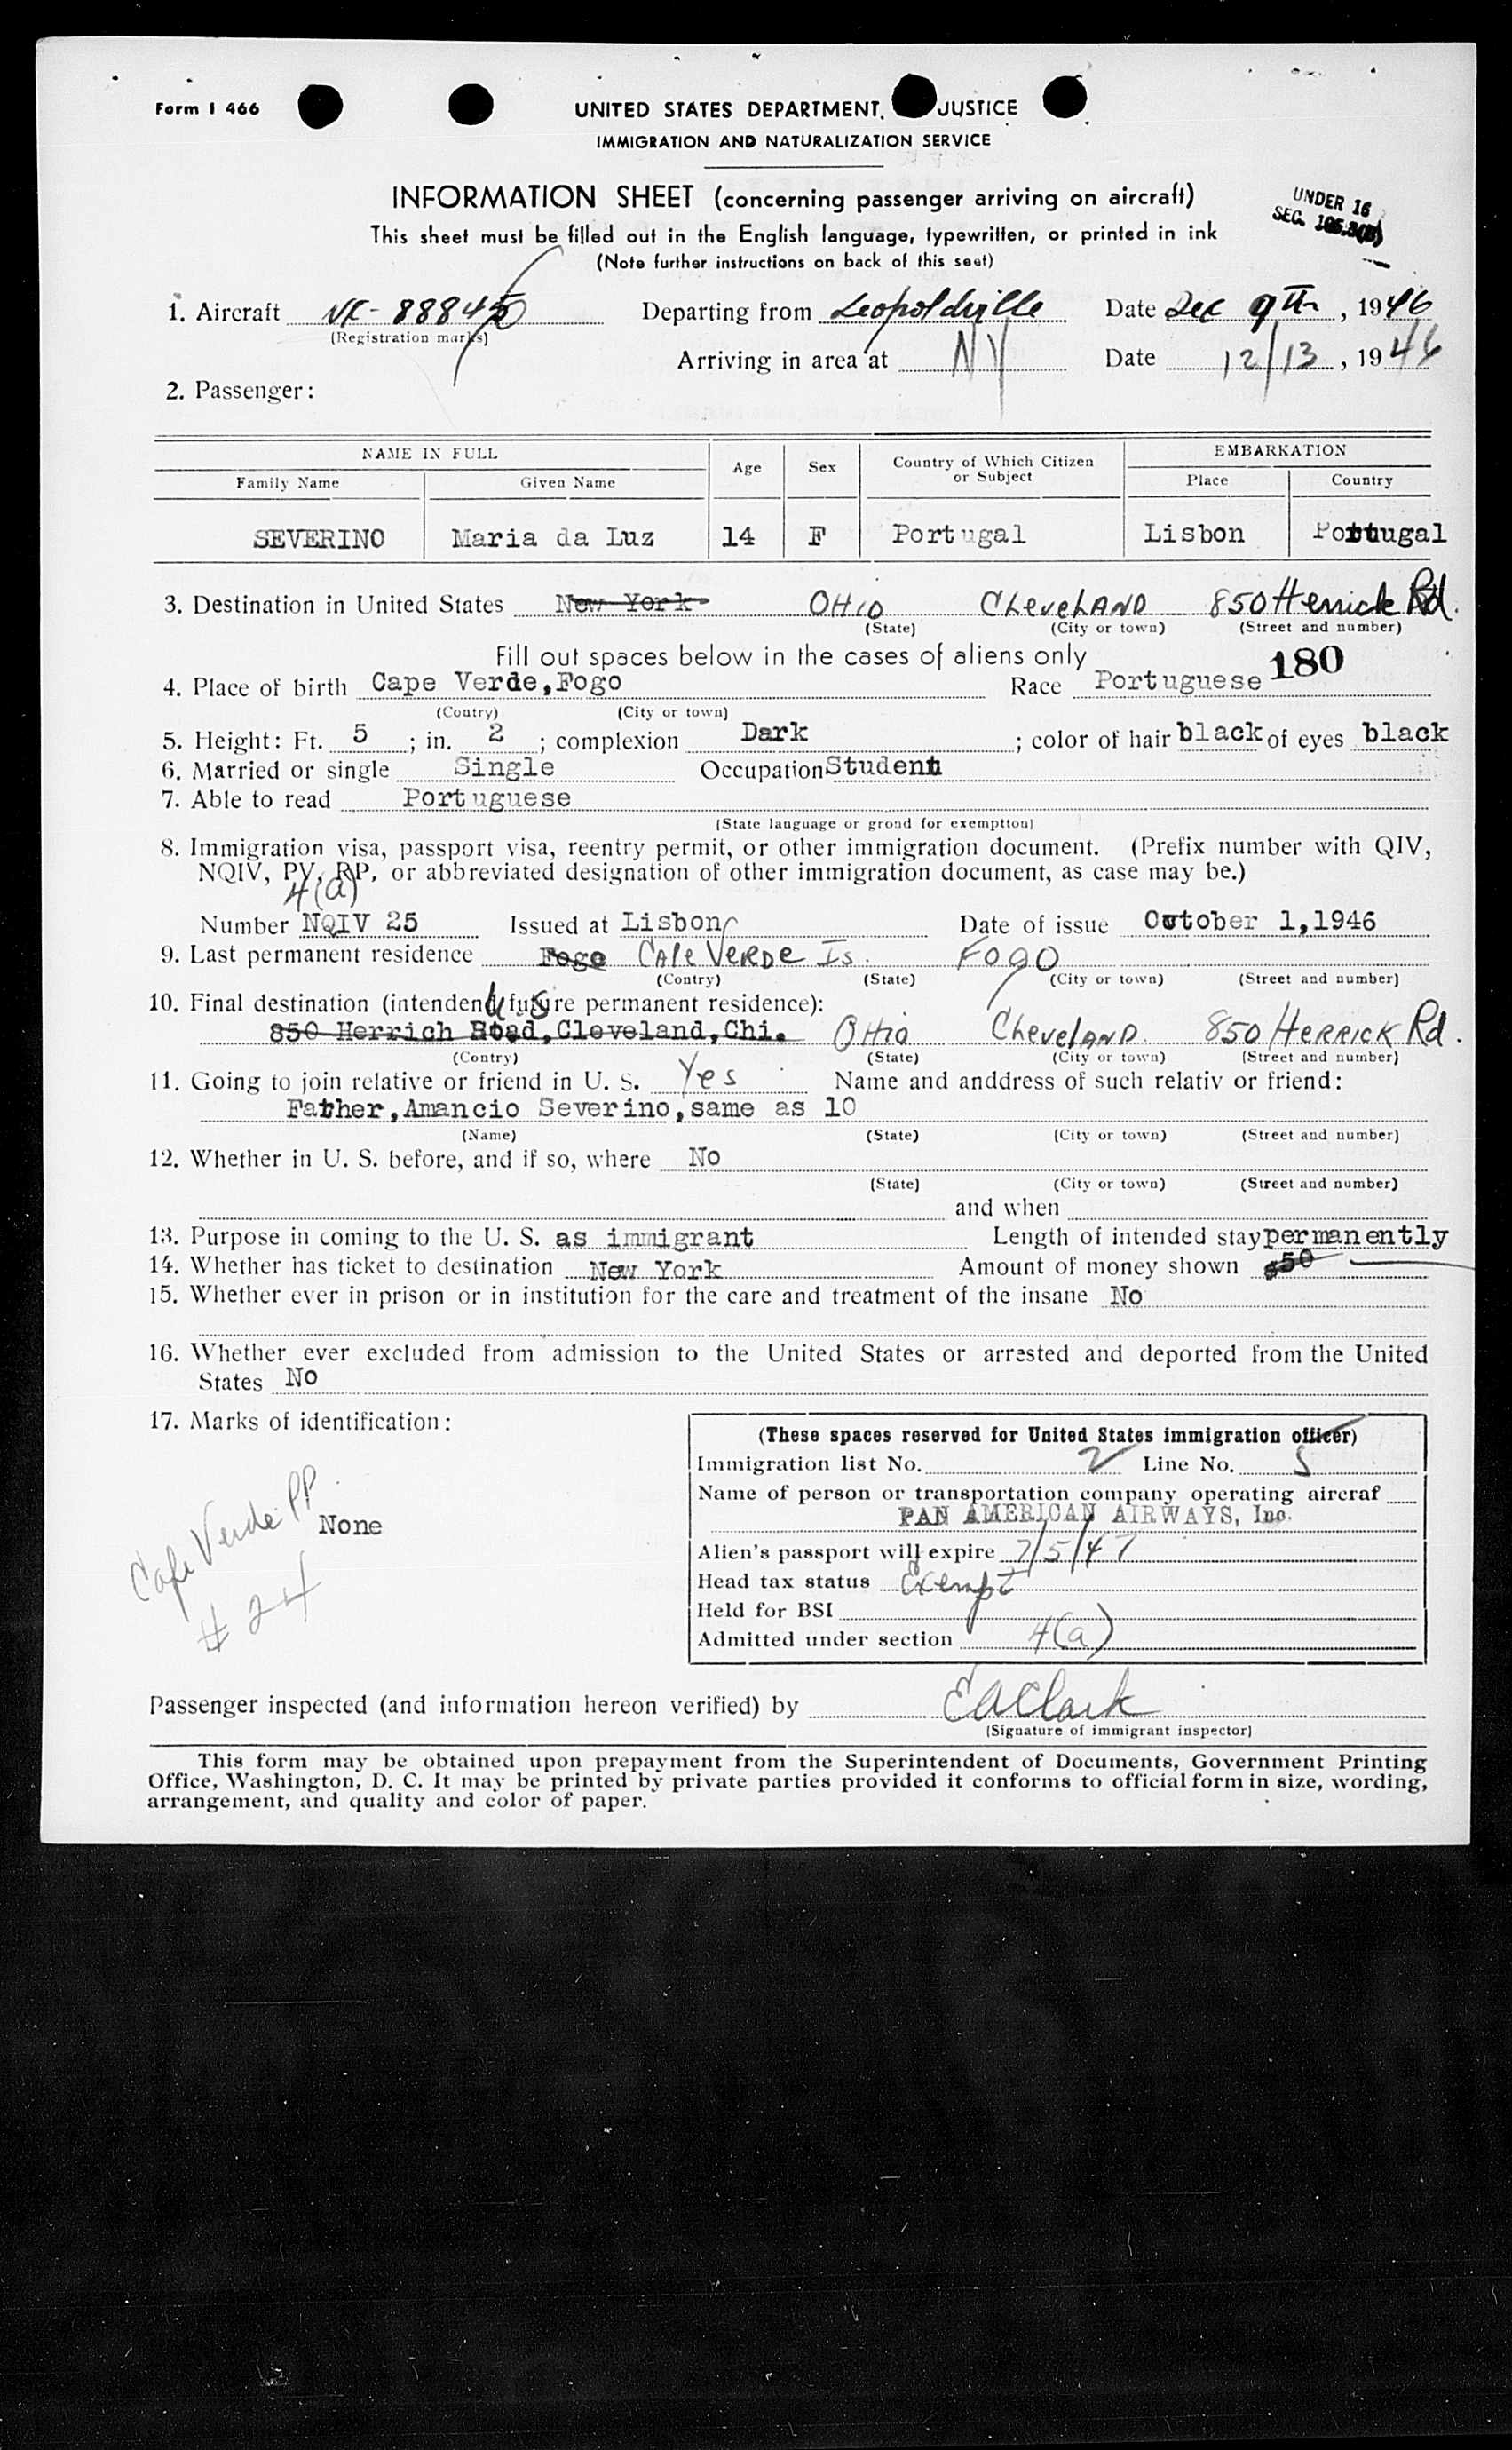 Form I 466
UNITED STATES DEPARTMENT JUSTICE
IMMIGRATION AND NATURALIZATION SERVICE
INFORMATION SHEET (concerning passenger arriving on aircraft)
UNDER 16
SEC. 105.3(b)
This sheet must be filled out in the English language, typewritten, or printed in ink
(Note further instructions on back of this seet)
1. Aircraft NC-88845 Departing from Leopoldville Date Dec 9th, 1946
(Registration marks)
Arriving in area at NY Date 12/13, 1946
2. Passenger:
NAME IN FULL Age Sex Country of Which Citizen or Subject EMBARKATION
Family Name Given Name Place Country
SEVERINO Maria da Luz 14 F Portugal Lisbon Portugal
3. Destination in United States New York OHIO CLeveLAND 850 Herrick Rd.
(State) (City or town) (Street and number)
Fill out spaces below in the cases of aliens only
180
4. Place of birth Cape Verde,Fogo Race Portuguese
(Contry) (City or town)
5. Height: Ft. 5 ; in. 2 ; complexion Dark ; color of hair black of eyes black
6. Married or single Single Occupation Student
7. Able to read Portuguese
(State language or grond for exemptton)
8. Immigration visa, passport visa, reentry permit, or other immigration document. (Prefix number with QIV,
NQIV, PV, RP, or abbreviated designation of other immigration document, as case may be.)
4(a)
Number NQIV 25 Issued at Lisbon Date of issue October 1,1946
9. Last permanent residence Fogo CAPe VERDe Is. FOGO
(Contry) (State) (City or town) (Street and number)
10. Final destination (intendend future permanent residence):
US
850 Herrich Road,Cleveland,Ohi. OHio CLeveLAND. 850 HERRICK Rd.
(Contry) (State) (City or town) (Street and number)
11. Going to join relative or friend in U. S. Yes Name and anddress of such relativ or friend:
Father,Amancio Severino,same as 10
(Name) (State) (City or town) (Street and number)
12. Whether in U. S. before, and if so, where No
(State) (City or town) (Street and number)
and when
13. Purpose in coming to the U. S. as immigrant Length of intended stay permanently
14. Whether has ticket to destination New York Amount of money shown $50
15. Whether ever in prison or in institution for the care and treatment of the insane No
16. Whether ever excluded from admission to the United States or arrested and deported from the United
States No
17. Marks of identification:
None
Cape Verde PP
# 24
(These spaces reserved for United States immigration officer)
Immigration list No. 2 Line No. 5
Name of person or transportation company operating aircraf
PAN AMERICAN AIRWAYS, Inc.
Alien's passport will expire 7/5/47
Head tax status Exempt
Held for BSI
Admitted under section 4(a)
Passenger inspected (and information hereon verified) by EAClark
(Signature of immigrant inspector)
This form may be obtained upon prepayment from the Superintendent of Documents, Government Printing
Office, Washington, D. C. It may be printed by private parties provided it conforms to official form in size, wording,
arrangement, and quality and color of paper.